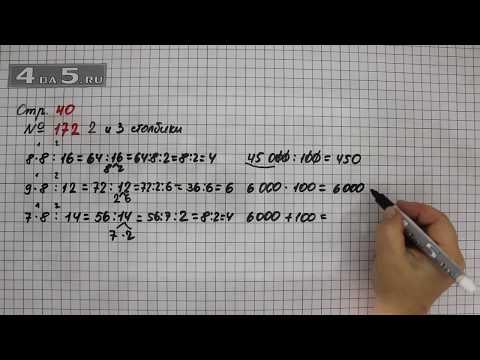 4 DA 5.RU
Стр. 40
№ 172 2 и 3 столбики
1 2
8·8:16=64:16=64:8:2=8:2=4 45 000:100=450
8 2
1 2
9·8:12=72:12=72:2:6=36:6=6 6 000·100=6000
2 6
1 2
7·8:14=56:14=56:7:2=8:2=4 6000+100=
7·2